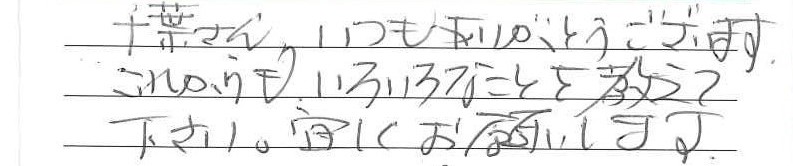 千葉さん、いつもありがとうございます.
これからも、いろいろなことを教えて
下さい。宜しくお願いします